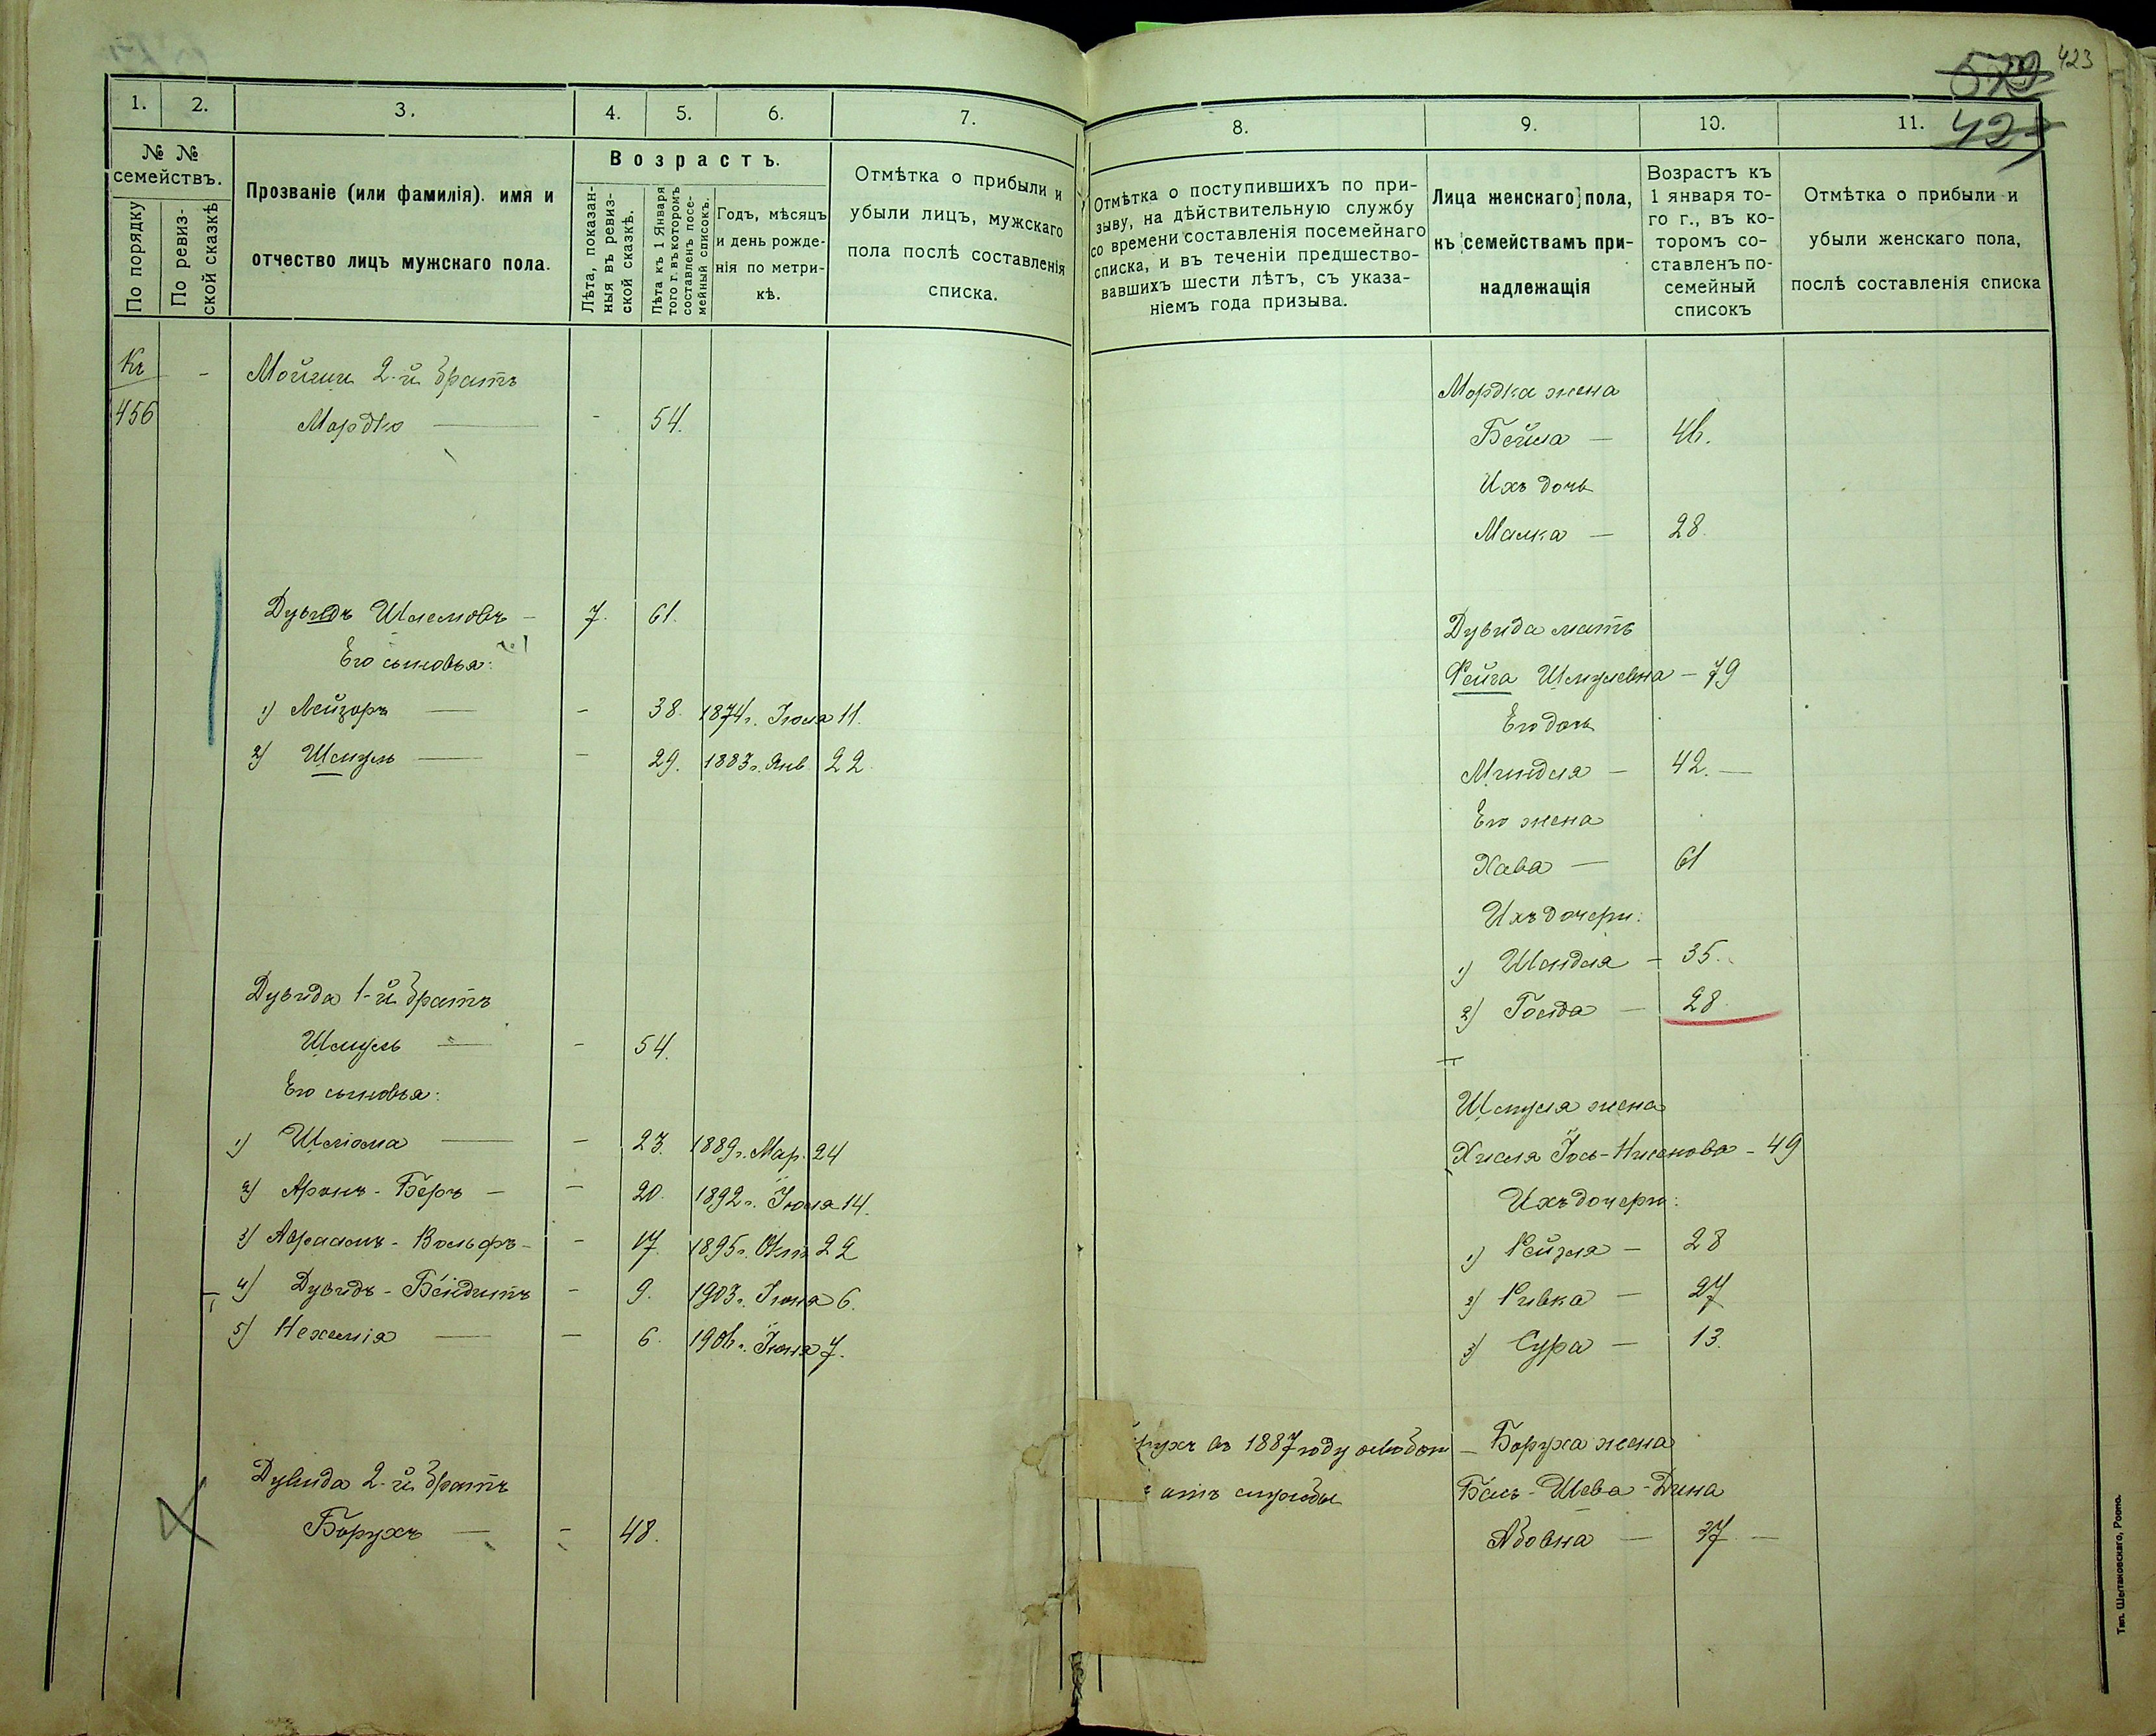 423
1. 2. 3. 4. 5. 6. 7.
№ № семействъ.
По порядку
По ревиз-
ской сказкѣ
Прозваніе (или фамилія). имя и
отчество лицъ мужскаго пола.
Возрастъ.
Лѣта, показан-
ныя въ ревиз-
ской сказкѣ.
Лѣта къ 1 Января
того г. въ которомъ
составленъ посе-
мейный списокъ.
Годъ, мѣсяцъ
и день рожде-
нія по метри-
кѣ.
Отмѣтка о прибыли и
убыли лицъ, мужскаго
пола послѣ составленія
списка.
Къ - Мойши 2-й братъ
456 Мордко — - 54.
Дувидъ Шлемовъ - 7. 61.
Его сыновья:
1) Лейзоръ — - 38. 1874 г. Іюля 11.
2) Шмуль — - 29. 1883 г. Янв. 22
Дувида 1-й братъ
Шмуль — - 54.
Его сыновья:
1) Шліома — - 23. 1889 г. Мар. 24
2) Аронъ-Беръ — - 20. 1892 г. Іюля 14.
3) Авраамъ-Вольфъ - - 17. 1895 г. Окт. 22
4) Дувидъ-Бендитъ - 9. 1903 г. Іюня 6.
5) Нехемія — - 6. 1906 г. Іюня 7.
Дувида 2-й братъ
Борухъ — - 48.
8. 9. 10. 11.
Отмѣтка о поступившихъ по при-
зыву, на дѣйствительную службу
со времени составленія посемейнаго
списка, и въ теченіи предшество-
вавшихъ шести лѣтъ, съ указа-
ніемъ года призыва.
Лица женскаго пола,
къ семействамъ при-
надлежащія
Возрастъ къ
1 января то-
го г., въ ко-
торомъ со-
ставленъ по-
семейный
списокъ
Отмѣтка о прибыли и
убыли женскаго пола,
послѣ составленія списка
Мордка жена
Бейла — 46.
Ихъ дочь
Малка — 28.
Дувида мать
Рейга Шмулевна - 79
Его дочь
Миндля — 42. —
Его жена
Хава — 61
Ихъ дочери:
1) Шендля - 35.
2) Голда — 28.
Шмуля жена
Хисля Іось-Нисонова - 49
Ихъ дочери:
1) Рейзля — 28
2) Ривка — 27
3) Сура — 13.
рухъ въ 1887 году освобож — Боруха жена
отъ службы Бась-Шева-Дина
Абовна — 37 —
Тип. Шептаковскаго, Ровно.